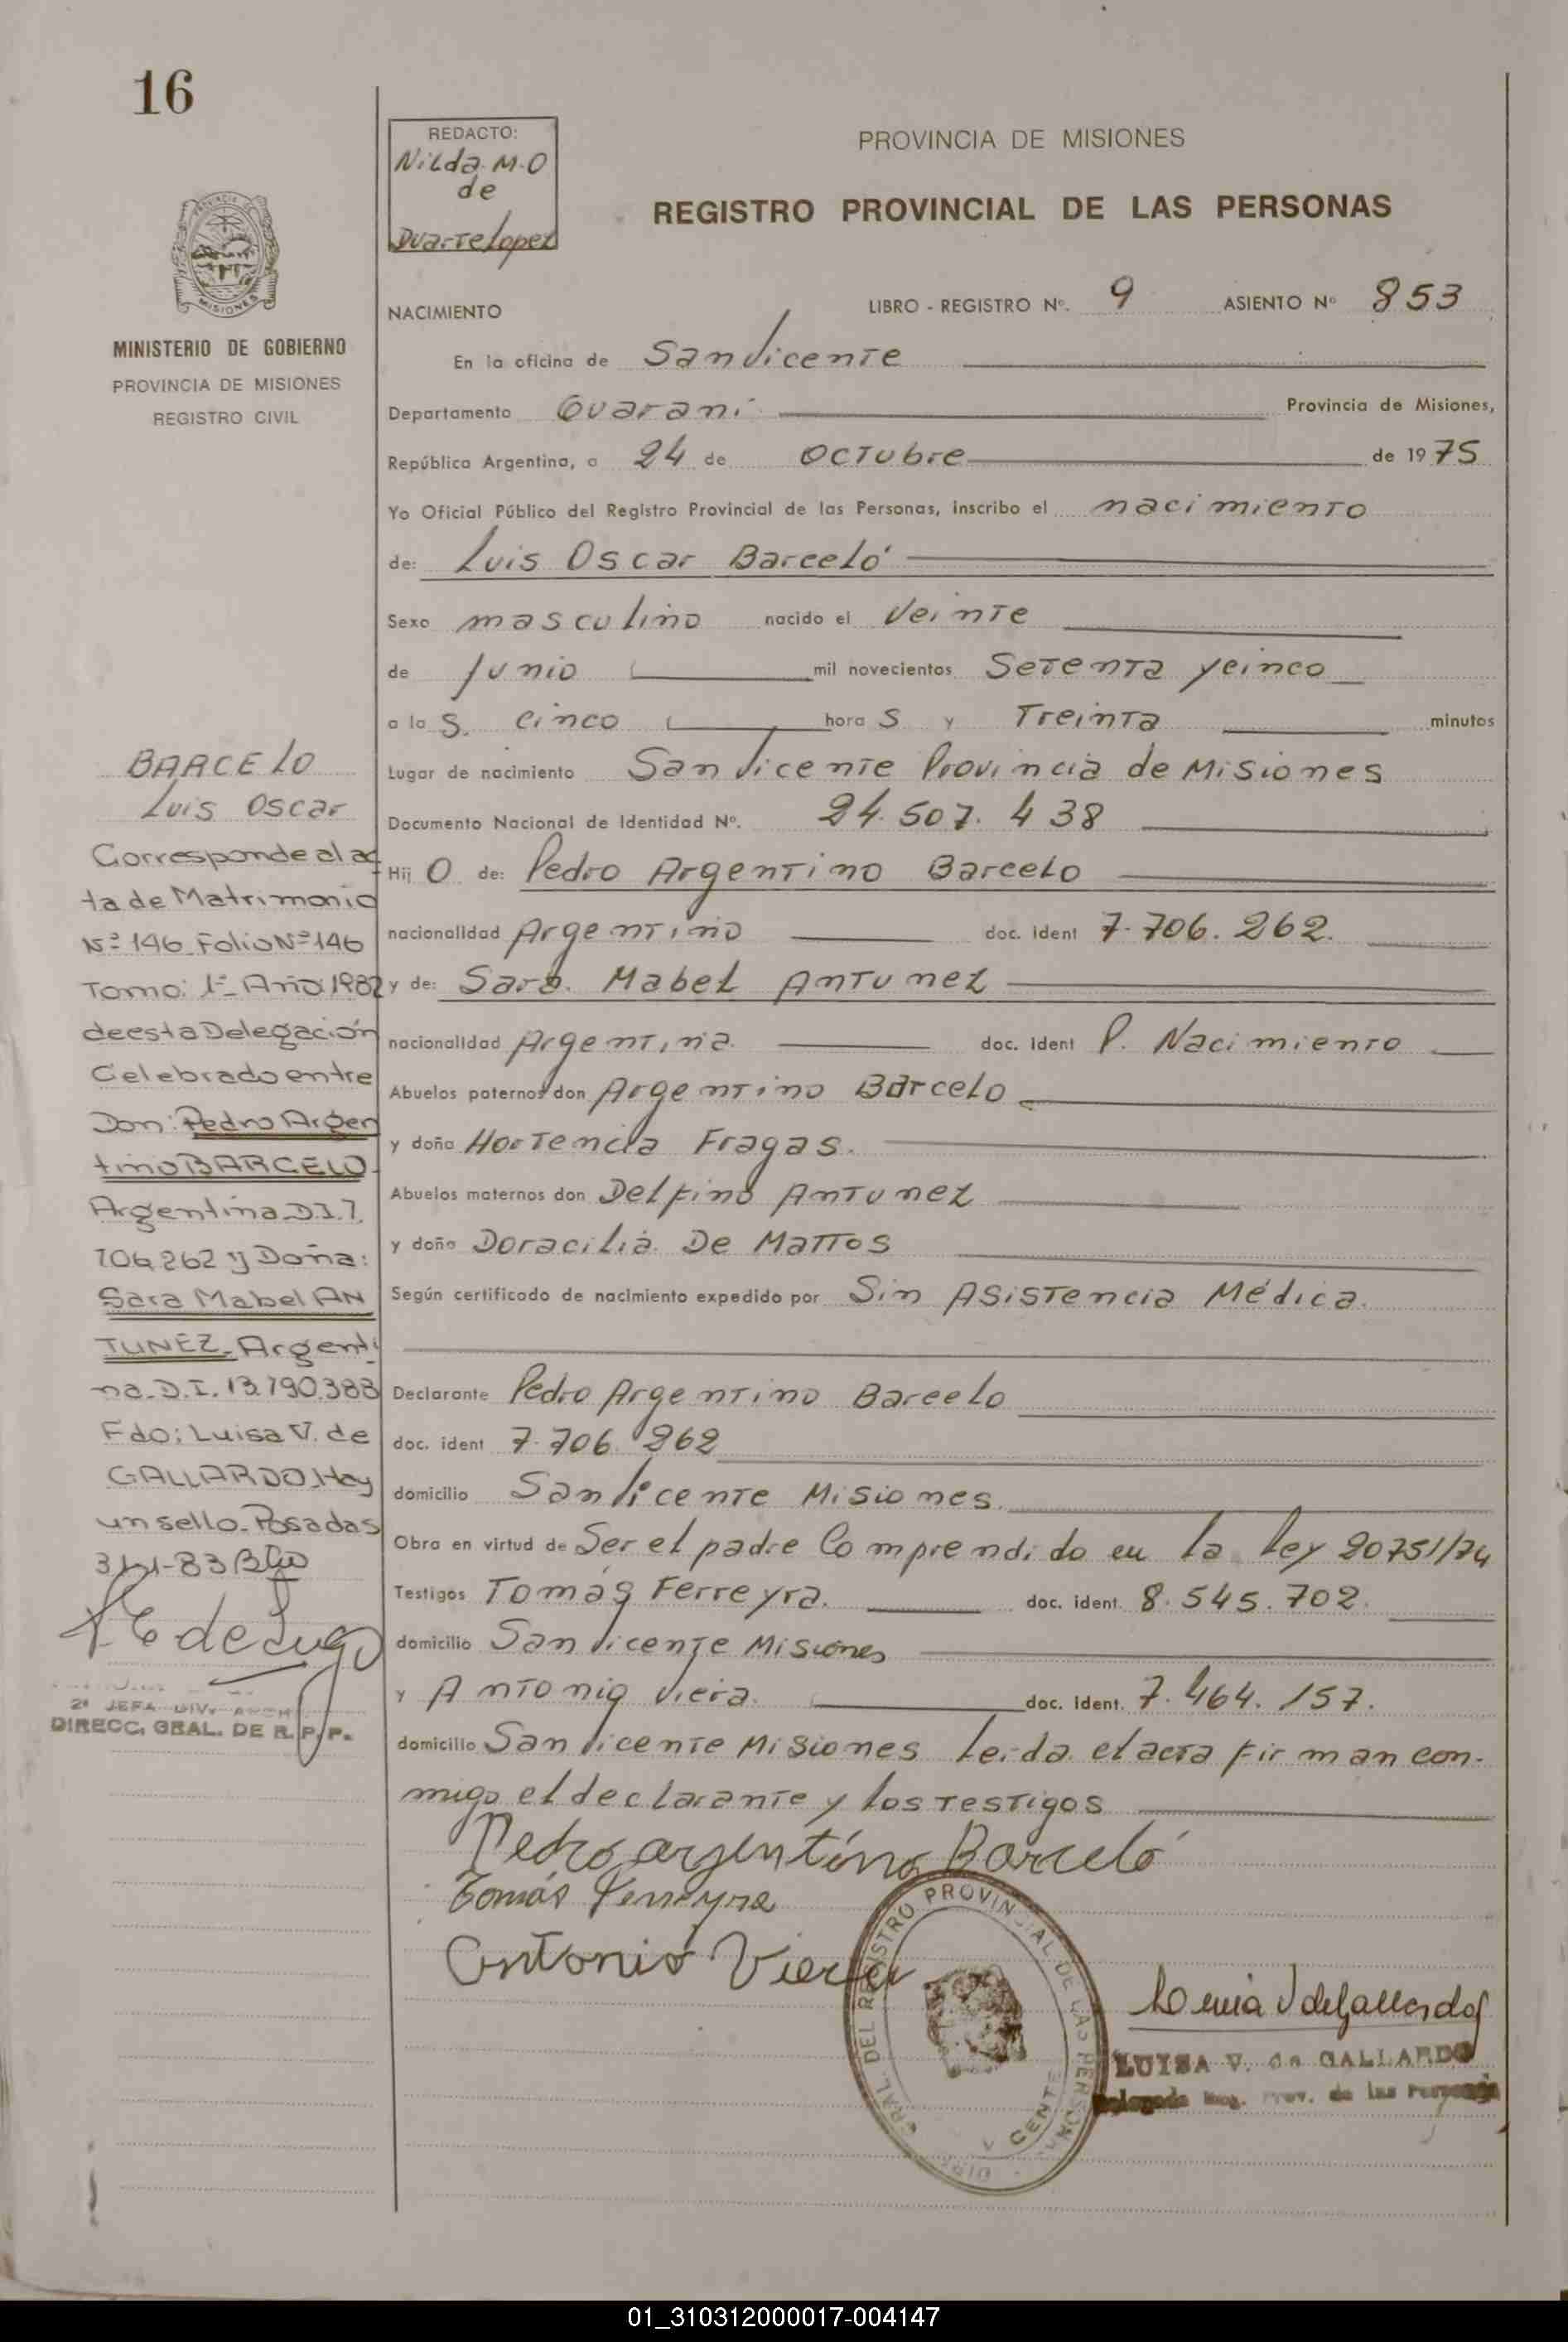 16
REDACTO:
Nilda M.O
de
Duarte Lopez
PROVINCIA DE MISIONES
REGISTRO PROVINCIAL DE LAS PERSONAS
MISIONES
MINISTERIO DE GOBIERNO
PROVINCIA DE MISIONES
REGISTRO CIVIL
NACIMIENTO
LIBRO - REGISTRO Nº. 9 ASIENTO Nº 853
En la oficina de San Vicente
Departamento Guaraní Provincia de Misiones,
República Argentina, a 24 de Octubre de 1975
Yo Oficial Público del Registro Provincial de las Personas, inscribo el nacimiento
de: Luis Oscar Barceló
Sexo masculino nacido el Veinte
de Junio mil novecientos Setenta y cinco
a las cinco horas y Treinta minutos
Lugar de nacimiento San Vicente Provincia de Misiones
Documento Nacional de Identidad Nº. 24.507.438
Hijo de: Pedro Argentino Barcelo
nacionalidad Argentino doc. ident 7.706.262.
y de: Sara Mabel Antunez
nacionalidad Argentina doc. ident P. Nacimiento
Abuelos paternos don Argentino Barcelo
y doña Hortencia Fragas.
Abuelos maternos don Delfino Antunez
y doña Doracilia De Mattos
Según certificado de nacimiento expedido por Sin Asistencia Médica.
Declarante Pedro Argentino Barcelo
doc. ident 7.706.262
domicilio San Vicente Misiones
Obra en virtud de Ser el padre Comprendido en la Ley 20751/74
Testigos Tomás Ferreyra. doc. ident. 8.545.702.
domicilio San Vicente Misiones
y Antonio Viera. doc. ident. 7.464.157.
domicilio San Vicente Misiones Leida el acta firman con-
migo el declarante y los testigos
Pedro argentino Barceló
Tomás Ferreyra
Antonio Viera
BARCELO
Luis Oscar
Corresponde al ac
ta de Matrimonio
Nº 146 Folio Nº 146
Tomo: 1º Año 1982
de esta Delegación
Celebrado entre
Don: Pedro Argen
tino BARCELO
Argentina D.I. 7.
706.262 y Doña:
Sara Mabel AN
TUNEZ, Argenti
na. D.I. 13.790.388
Fdo: Luisa V. de
GALLARDO. Hay
un sello. Posadas
2ª JEFA DIV.
DIRECC. GRAL. DE R. P. P.
GRAL. DEL REGISTRO PROVINCIAL DE LAS PERSONAS
LUISA V. de GALLARDO
Delegada Reg. Prov. de las Personas
01_310312000017-004147